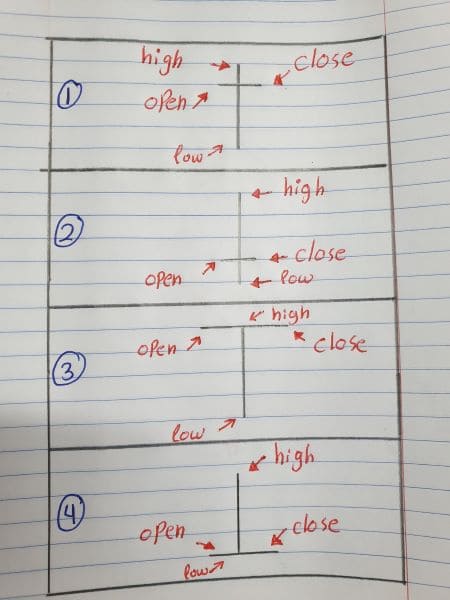 high
close
①
open
low
high
②
close
open
low
high
③
open
close
low
high
④
open
close
low